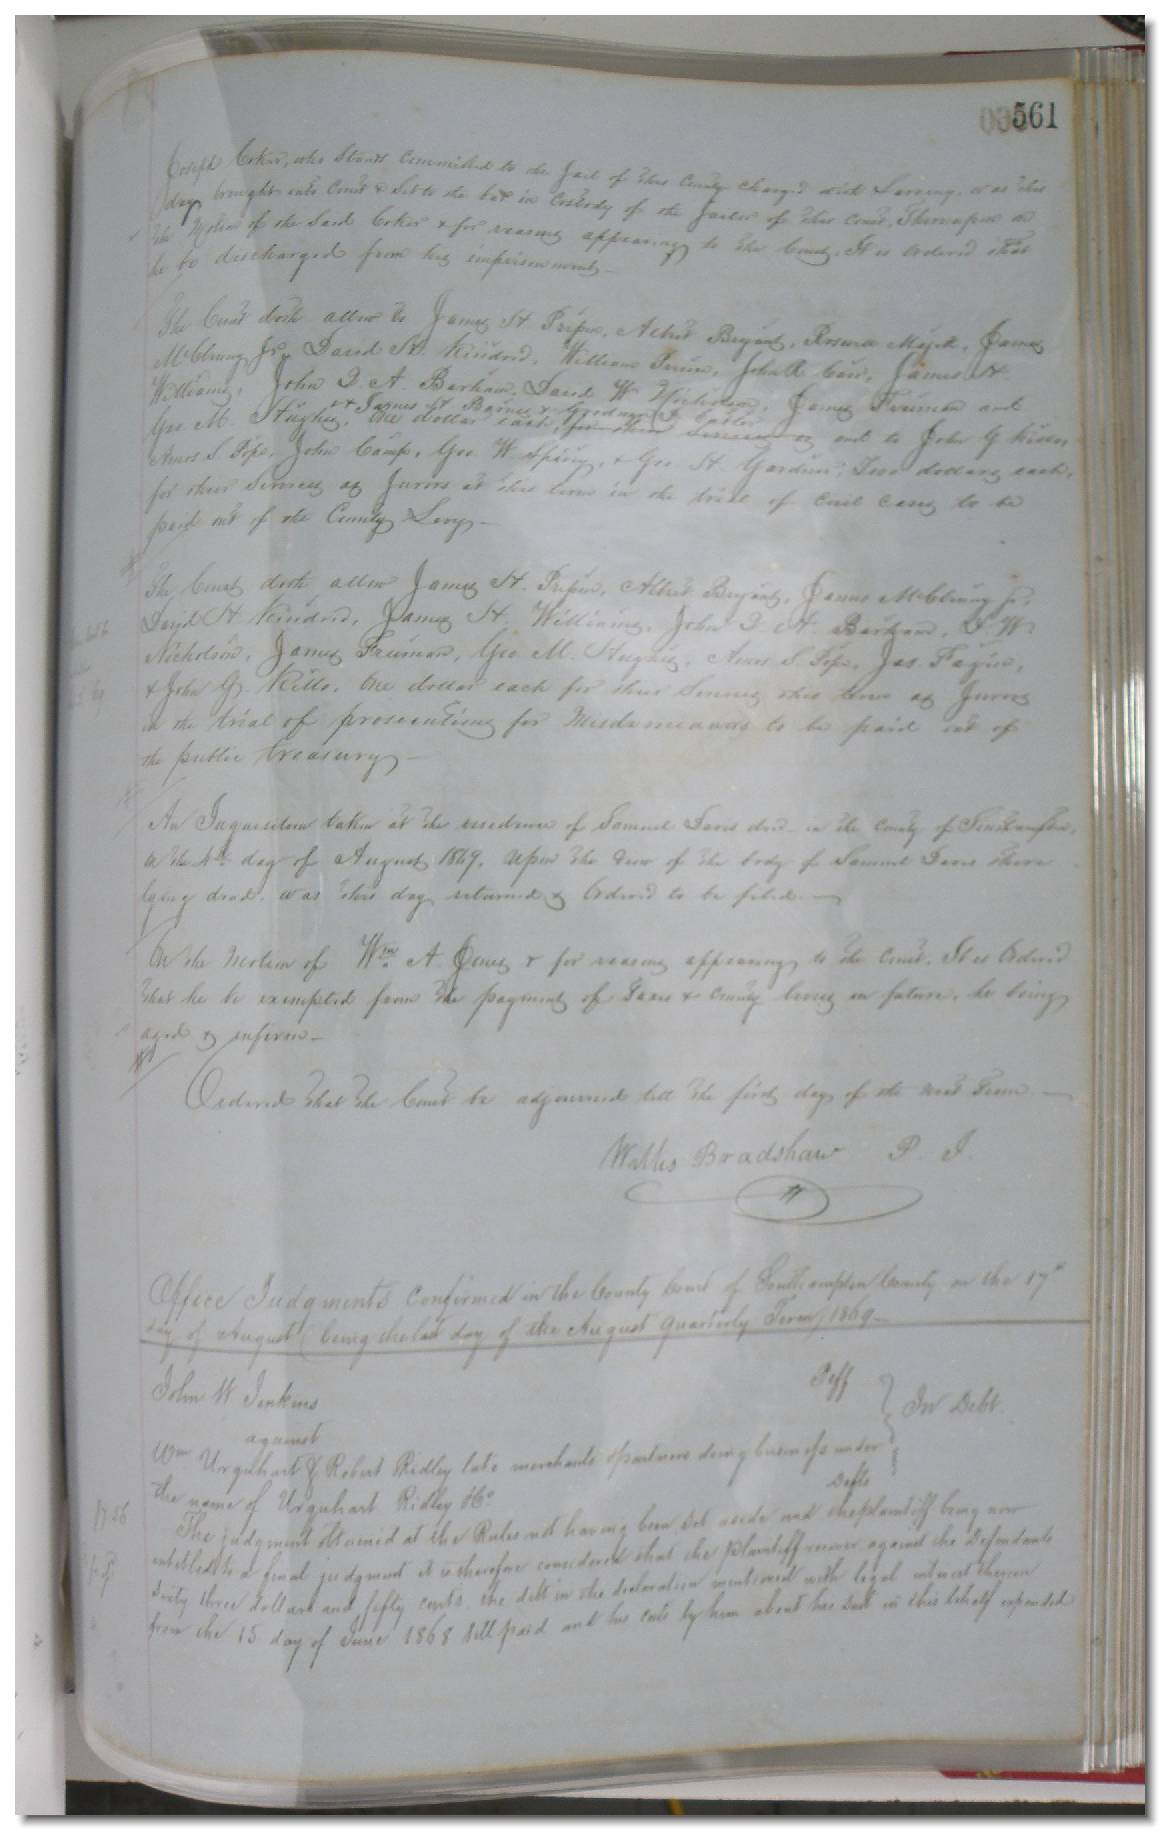 561
Joseph Coker, who stands committed to the Jail of this County charged with Larceny, was this
day brought into Court & Set to the bar in Custody of the Jailor of this Court, Thereupon on
the Motion of the said Coker & for reasons appearing to the Court, It is Ordered that
he be discharged from his imprisonment
The Court doth allow to James H. Albert Bryant, James
McClenny Jr, David H. Kindred, William John R. James H.
Williams, John D. A. Barham, David W. Nicholson, James Freeman and
& James H. Barnes &
Geo M. Hughes, One dollar each, for their Services as and to John G.
Amos S. Pope, John Camp, Geo. W. Spivey, & Geo. H. Gardner, Two dollars each,
for their Services as Jurors at this term in the trial of civil cases to be
paid out of the County Levy
The Court doth allow James H. Albert Bryant, James McClenny Jr,
David H. Kindred, James H. Williams, John D. A. Barham, D. W.
Nicholson, James Freeman, Geo. M. Hughes, Amos S. Pope, Jas.
& John G. One dollar each for their Services this term as Jurors
in the trial of prosecutions for Misdemeanors to be paid out of
the public treasury
An Inquisition taken at the residence of Samuel Davis decd. in the County of Southampton,
on the 4th day of August 1869, Upon the View of the body of Samuel Davis there
lying dead, was this day returned & Ordered to be filed
On the Motion of Wm A. Jones & for reasons appearing to the Court, It is Ordered
that he be exempted from the payment of Taxes & County levies in future, he being
aged & infirm
Ordered that the Court be adjourned till the first day of the next Term
Bradshaw P. J.
Office Judgments confirmed in the County Court of Southampton County on the 17th
day of August (being the last day of the August Quarterly Term) 1869
John W Jenkins Plff
against In Debt
Wm Urquhart & Robert Ridley late merchants & partners doing business under
the name of Urquhart Ridley & Co Defts
The judgment obtained at the Rules not having been set aside and the plaintiff being now
entitled to a final judgment it is therefore considered that the plaintiff recover against the Defendants
Sixty three dollars and fifty cents the debt in the declaration mentioned with legal interest thereon
from the 15 day of June 1868 till paid and his costs by him about his suit in this behalf expended